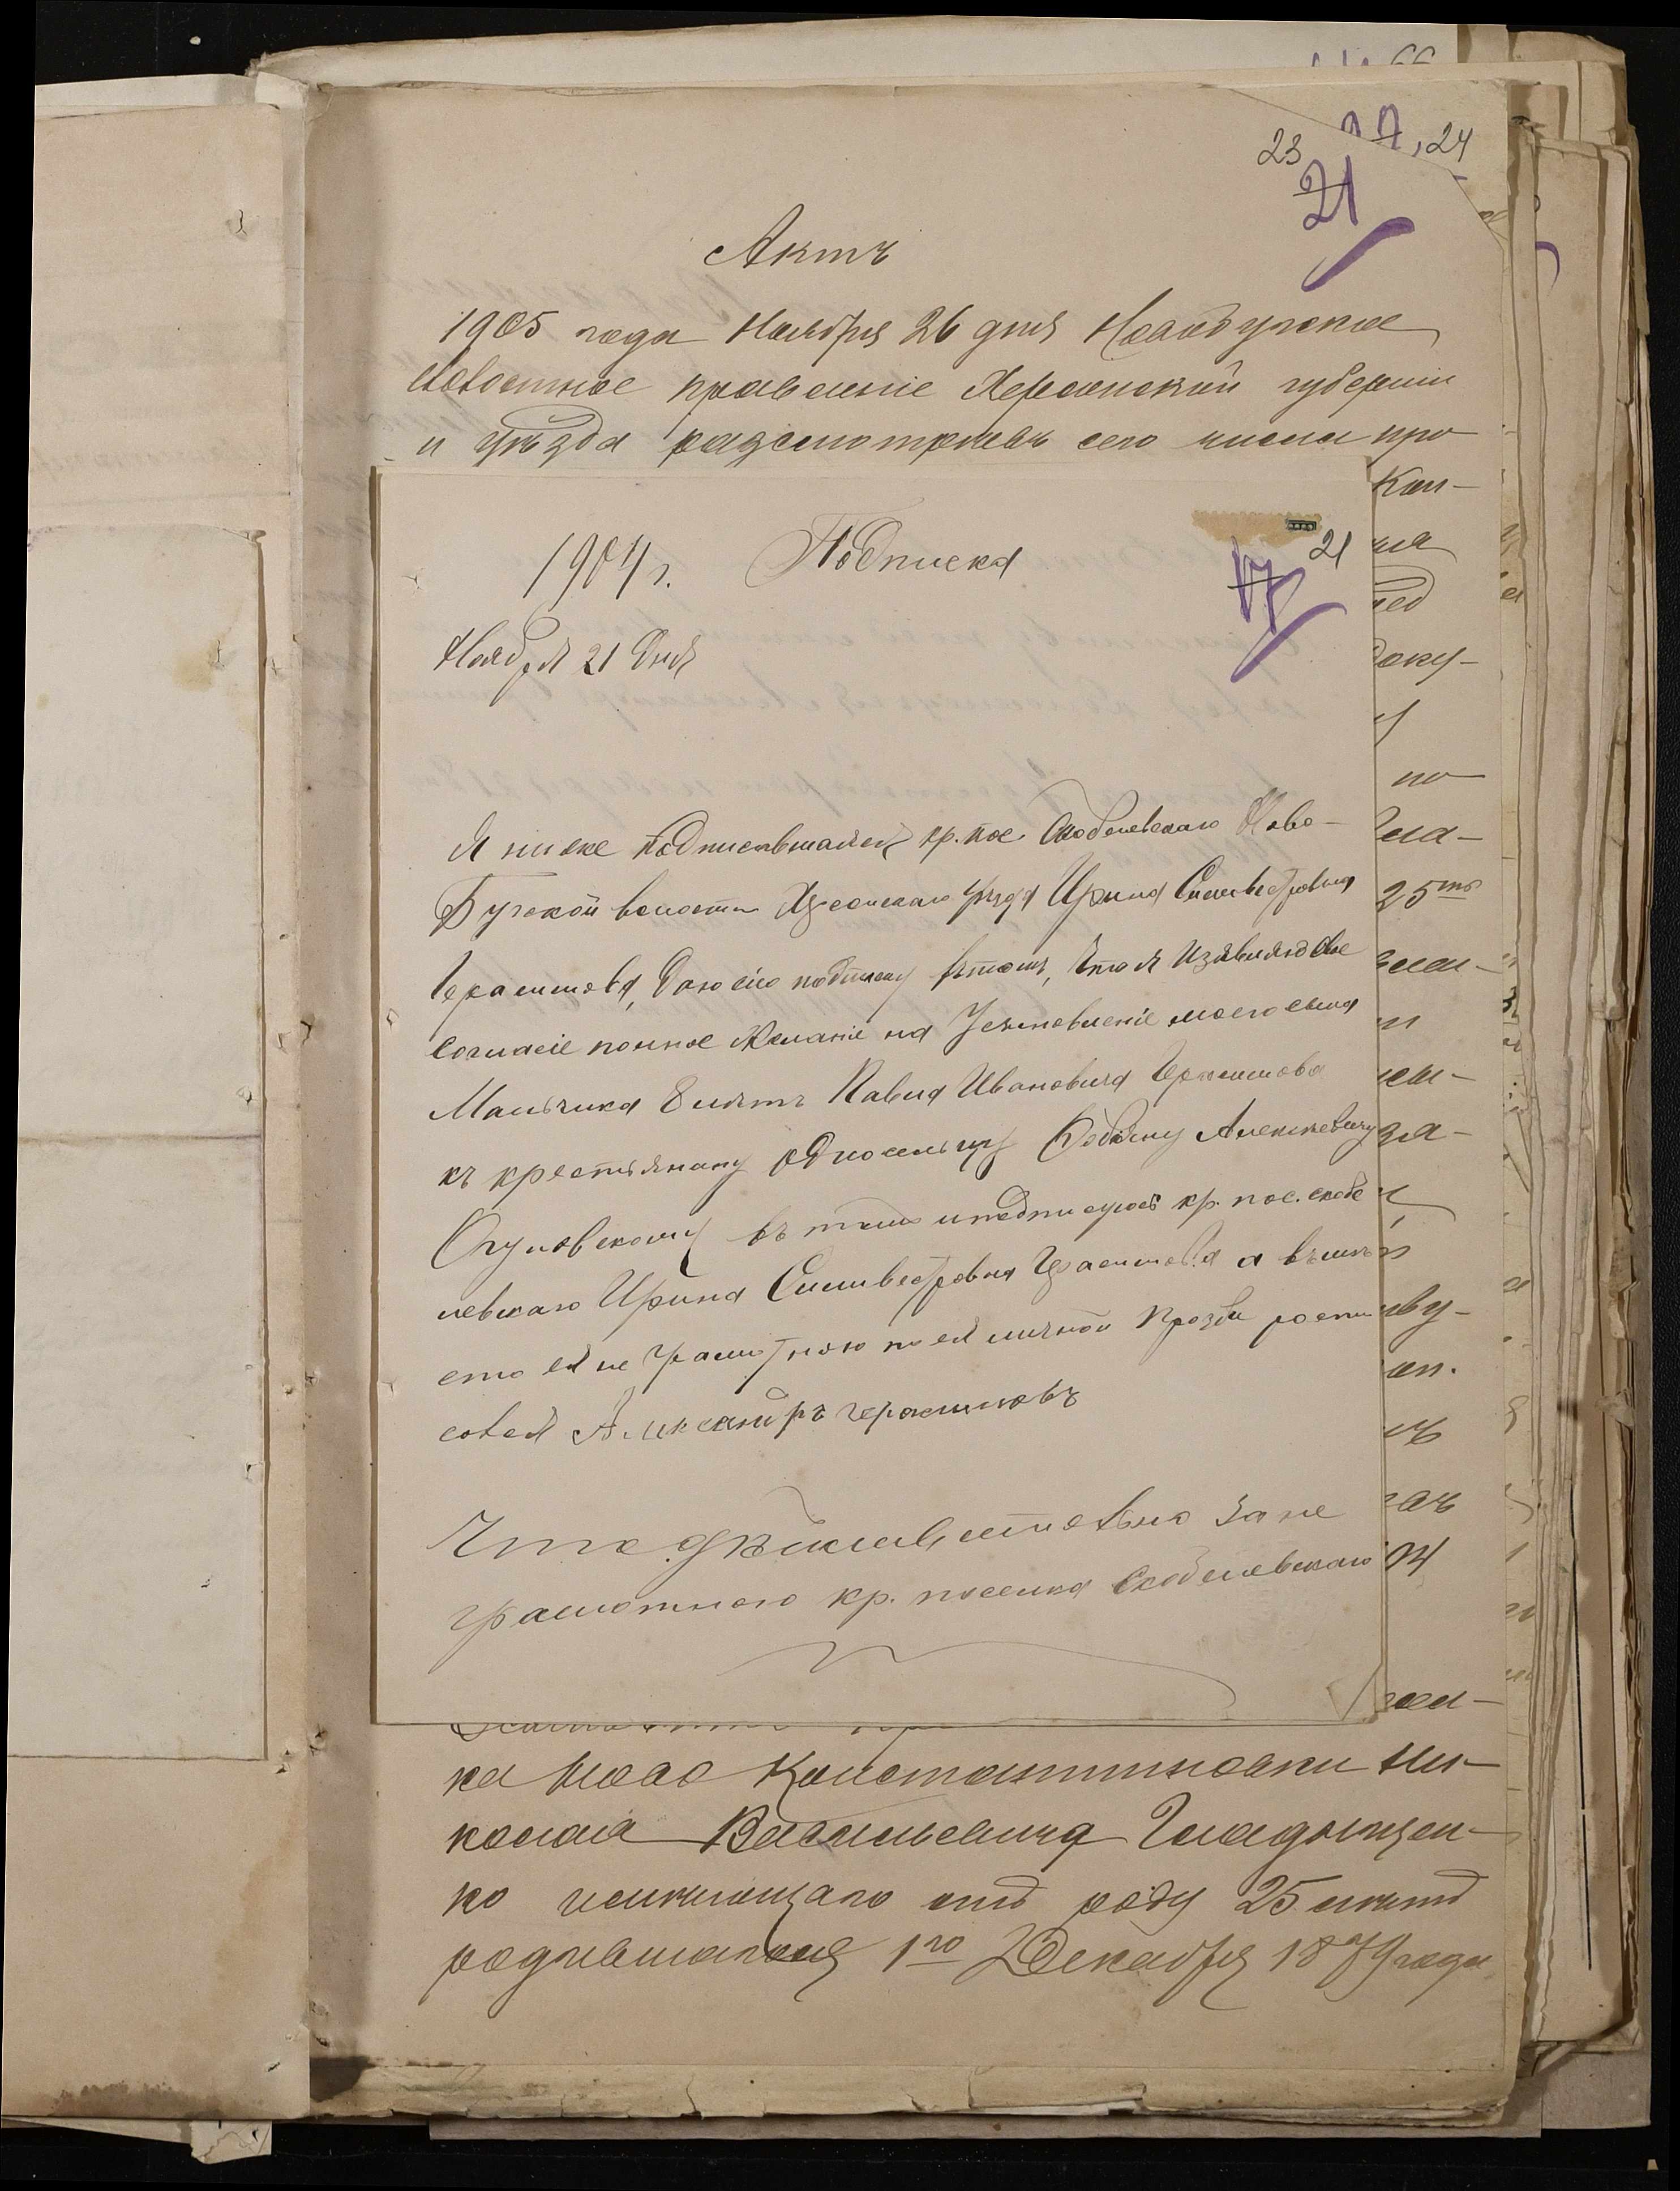 23 27, 24
21
Актъ
1905 года Ноября 26 дня Новобугское
волостное правление Херсонской губернии
и уѣзда разсмотрѣвъ сего числа про
1904 г. Подписка
21
17
Ноября 21 Дня
Я ниже подписавшаяся кр. пос. Скобелевскаго Ново-
Бугской волости Херсонскаго уѣзда Ирина Сильвестровна
Герасимова, даю сію подписку въ томъ, что я изъявляю свое
согласіе полное желаніе на Усыновленіе моего сына
Мальчика 8 лѣтъ Павла Ивановича Герасимова
къ крестьянину односельцу Алексеевичу
въ томъ и подписуюсь кр. пос. скобе
левскаго Ирина Сильвестровна Герасимова а вместо
ето ея не Грамотною по ея личной прозбе роспи
совся Александръ Герасимовъ
Что действительно за не
грамотного кр. поселка Скобелевскаго
Кон-
на
доку-
по
25
ка Ново Константиновки Ни-
колая Васильевича Гладыщен-
ко имѣющаго отъ роду 25 лѣтъ
родившагося 1го Декабря 1879 года